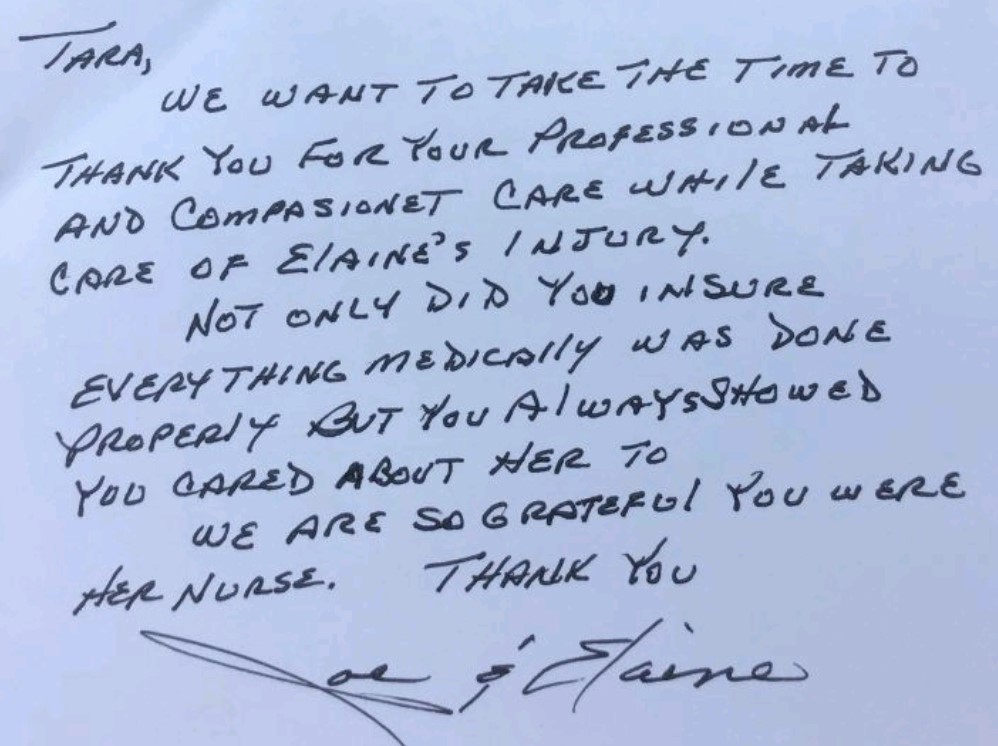 TARA,
WE WANT TO TAKE THE TIME TO
THANK YOU FOR YOUR PROFESSIONAL
AND COMPASIONET CARE WHILE TAKING
CARE OF ElAINE'S INJURY.
NOT ONLY DID YOU INSURE
EVERYTHING MEDICAlly WAS DONE
PROPERlY BUT YOU AlWAYS SHOWED
YOU CARED ABOUT HER TO
WE ARE SO GRATEFUl YOU WERE
HER NURSE. THANK YOU
Joe & Elaine